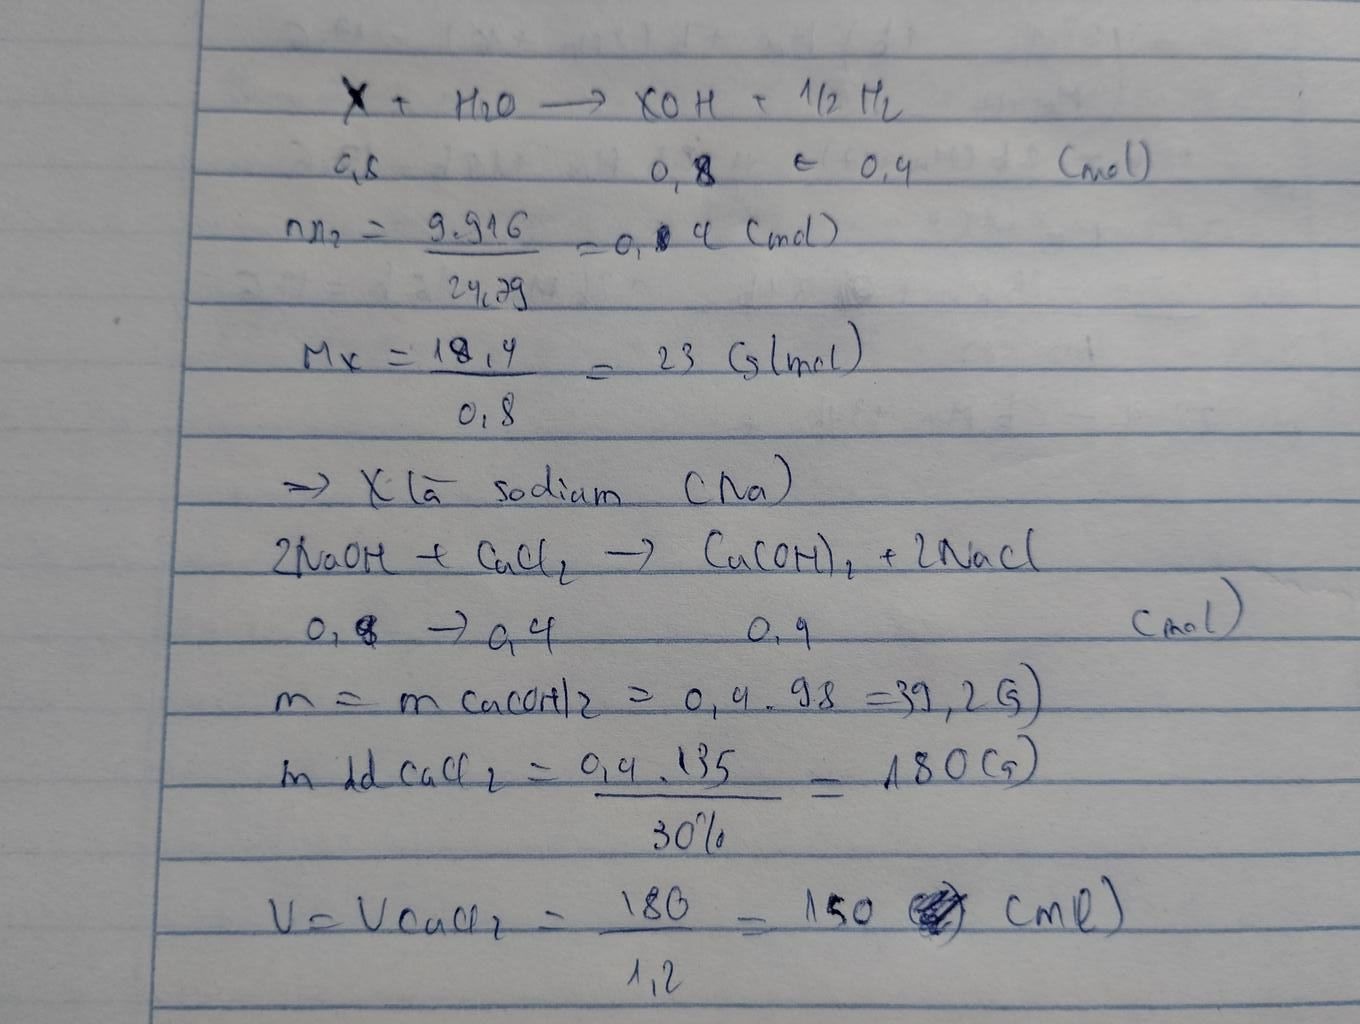 X + H2O → XOH + 1/2 H2
0,8 0,8 ← 0,4 (mol)
nH2 = 9.916 / 24,79 = 0,4 (mol)
Mx = 18,4 / 0,8 = 23 (g/mol)
=> X là sodium (Na)
2NaOH + CuCl2 → Cu(OH)2 + 2NaCl
0,8 → 0,4 0,4 (mol)
m = m Cu(OH)2 = 0,4 . 98 = 39,2 (g)
m dd CuCl2 = 0,4 . 135 / 30% = 180 (g)
V = V CuCl2 = 180 / 1,2 = 150 (ml)